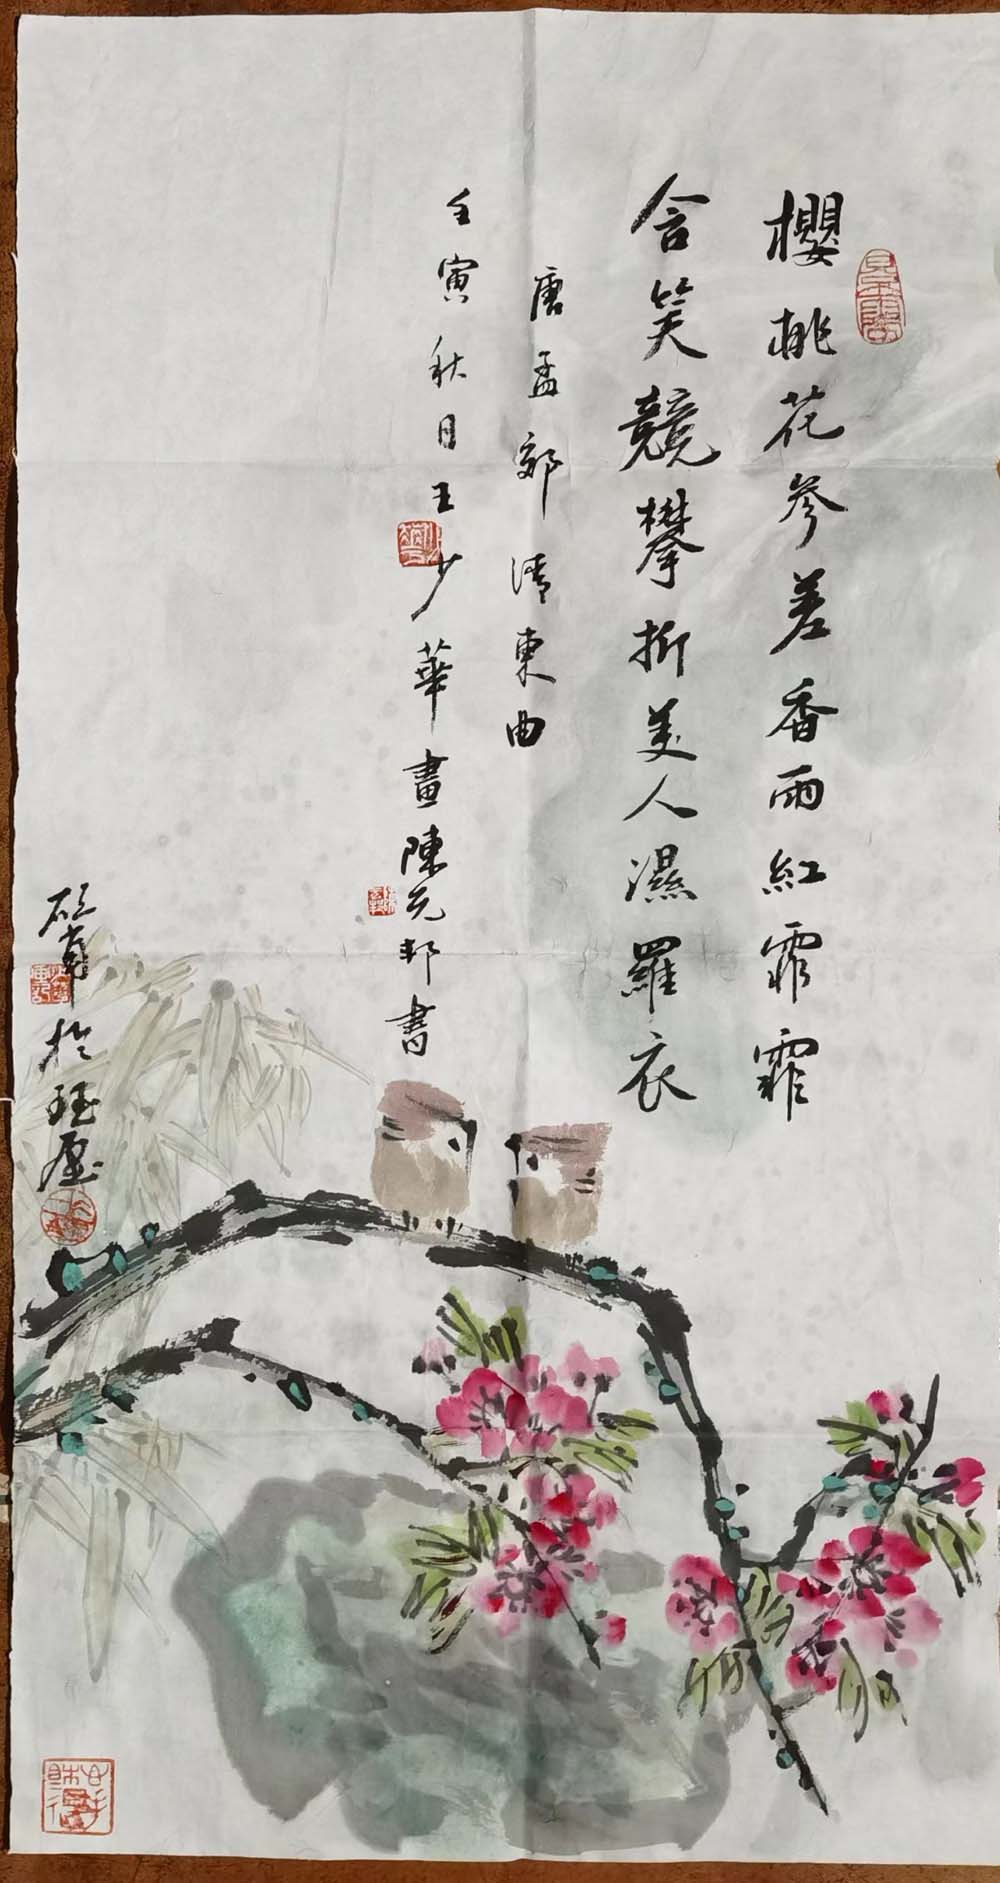 櫻桃花參差香雨紅霏霏
含笑競攀折美人濕羅衣
唐孟郊清東曲
壬寅秋月王少華畫陳元邦書
於